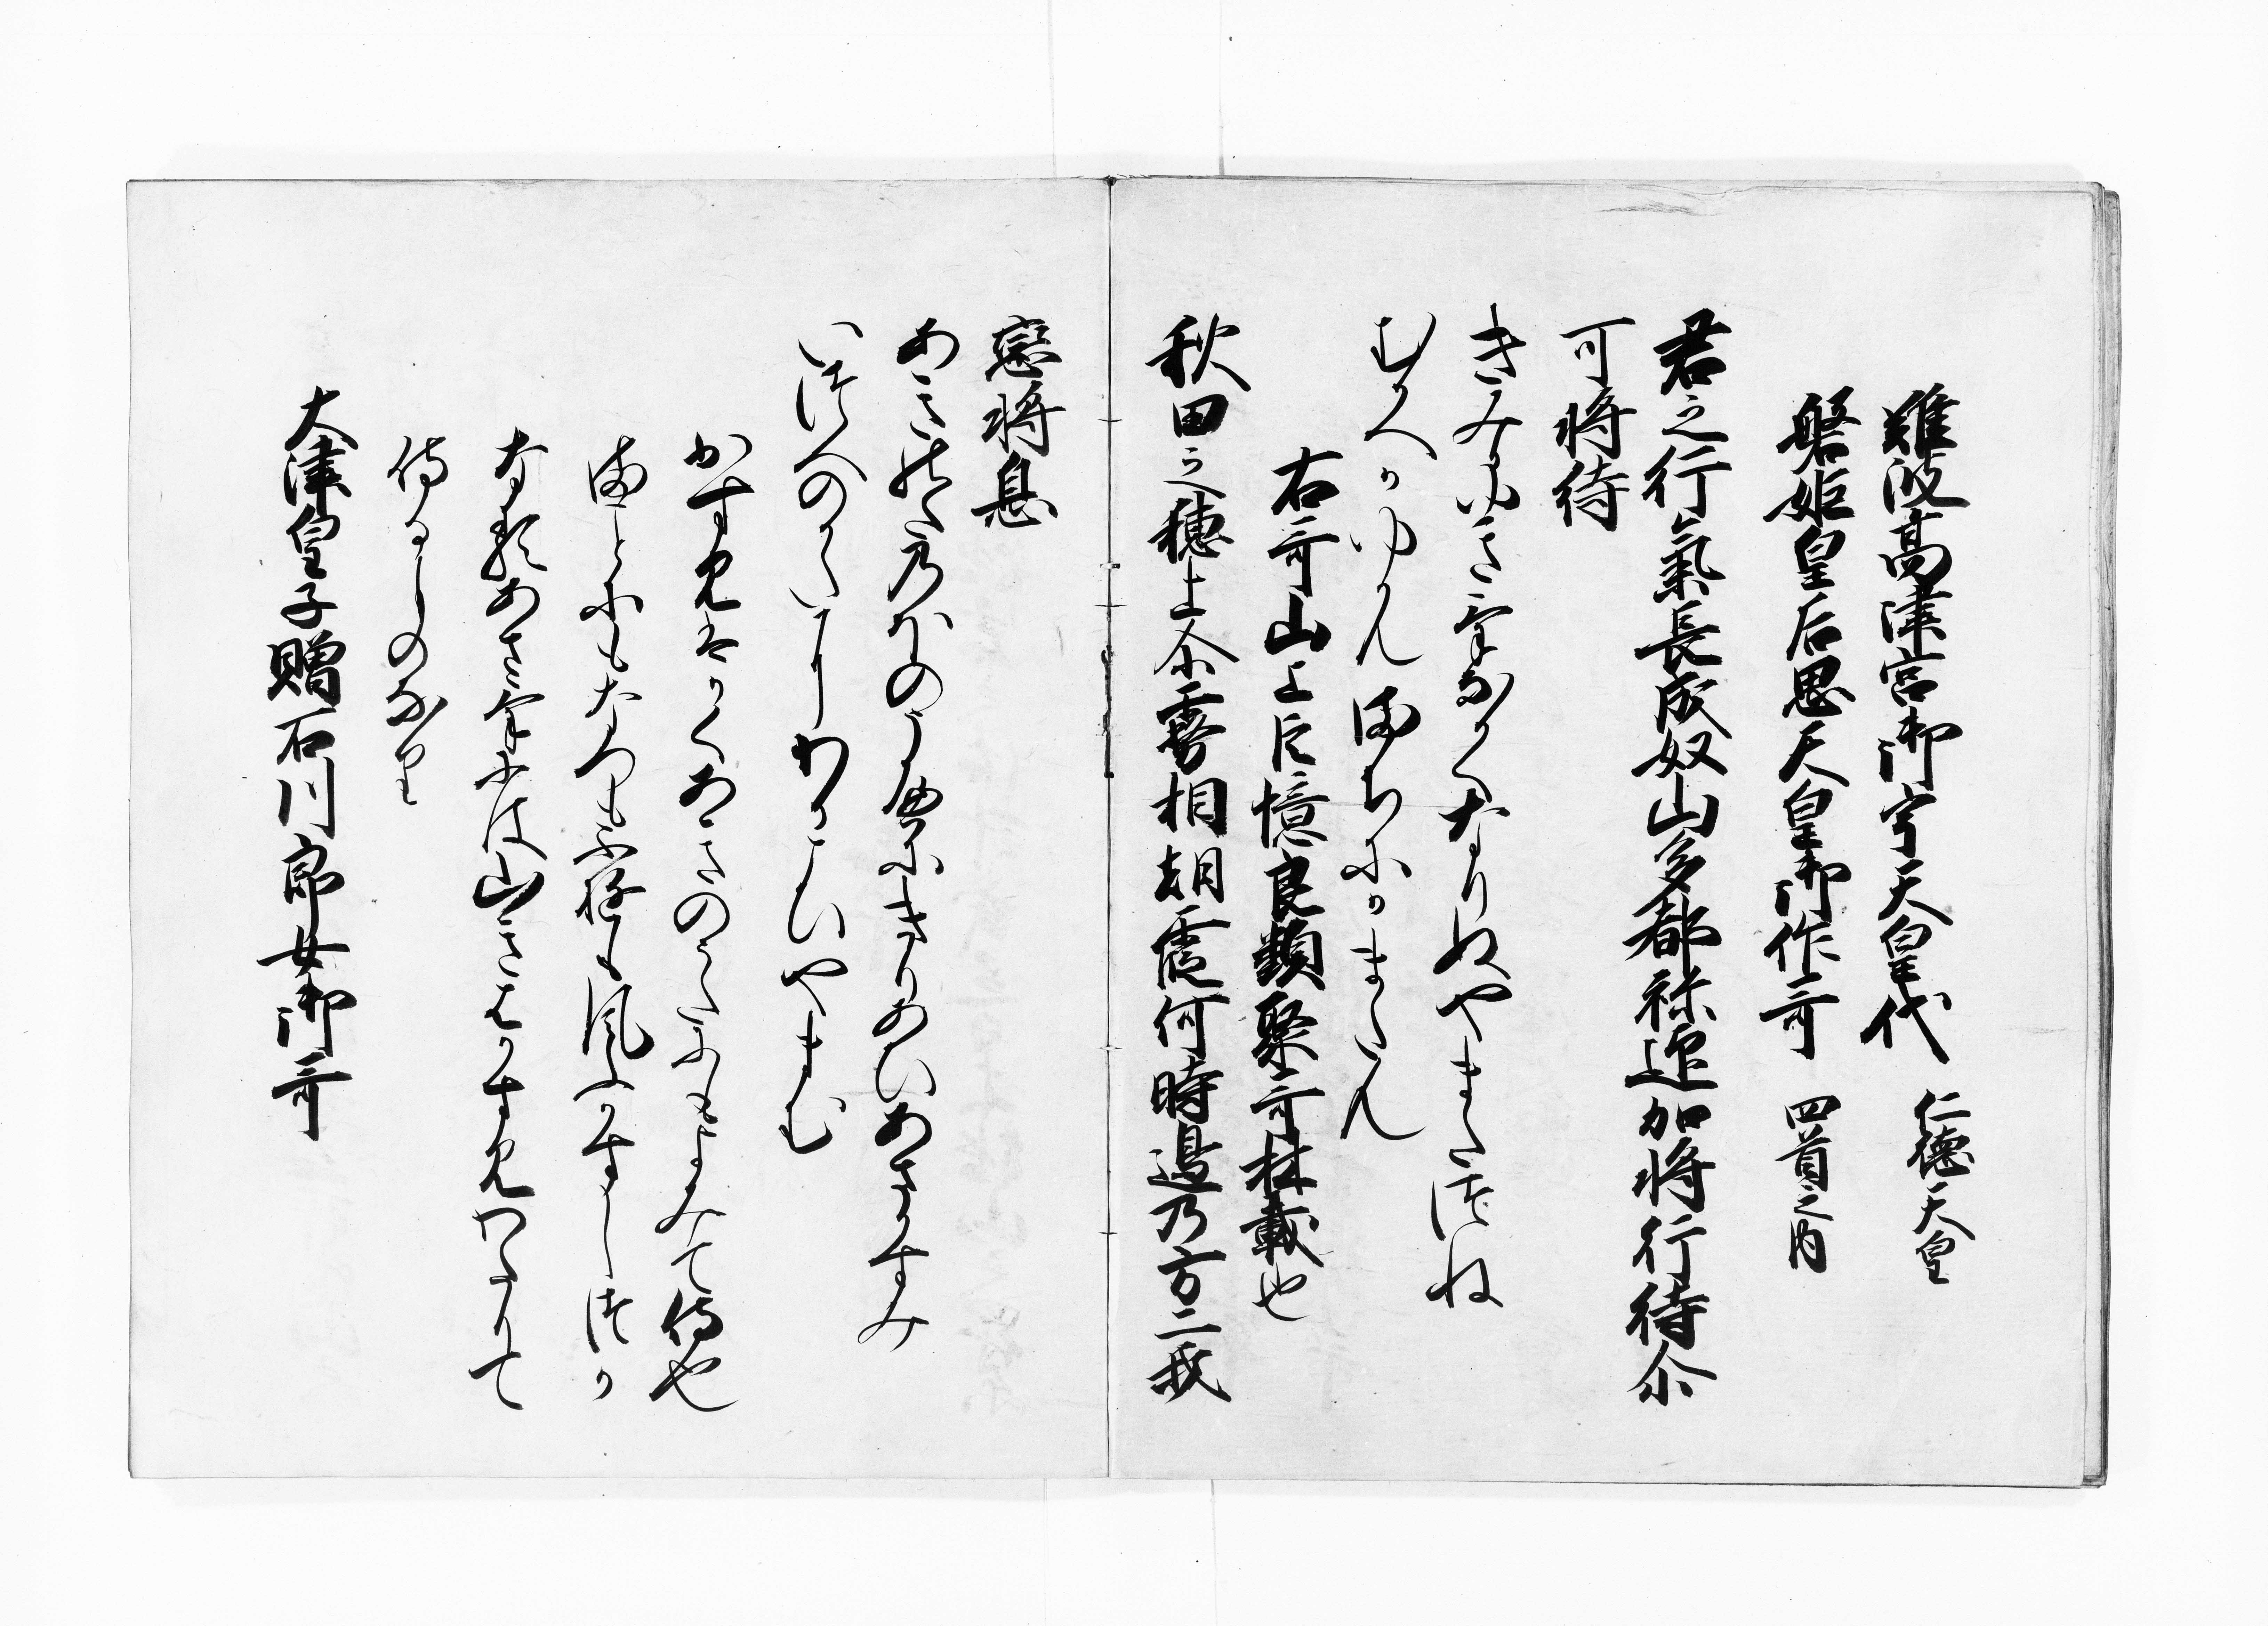 難波高津宮御宇天皇代 仁徳天皇
磐姫皇后思天皇御作哥 四首之内
君之行氣長成奴山多都祢迩加将行待尓
可将待
きみかゆきけなかくなりぬやまたつね
むかへかゆかんまちにかまたん
右哥山上臣憶良類聚哥林載也
秋田之穂上尓霧相朝霞何時邊乃方二我
戀将息
あきの田乃ほのうへにきりあひあさかすみ
いつへのかたにわかこひやまむ
かすみはかくあきのうたにもよみて侍や
春とにもなつも冬
侍るしのなり
大津皇子贈石川郎女御哥